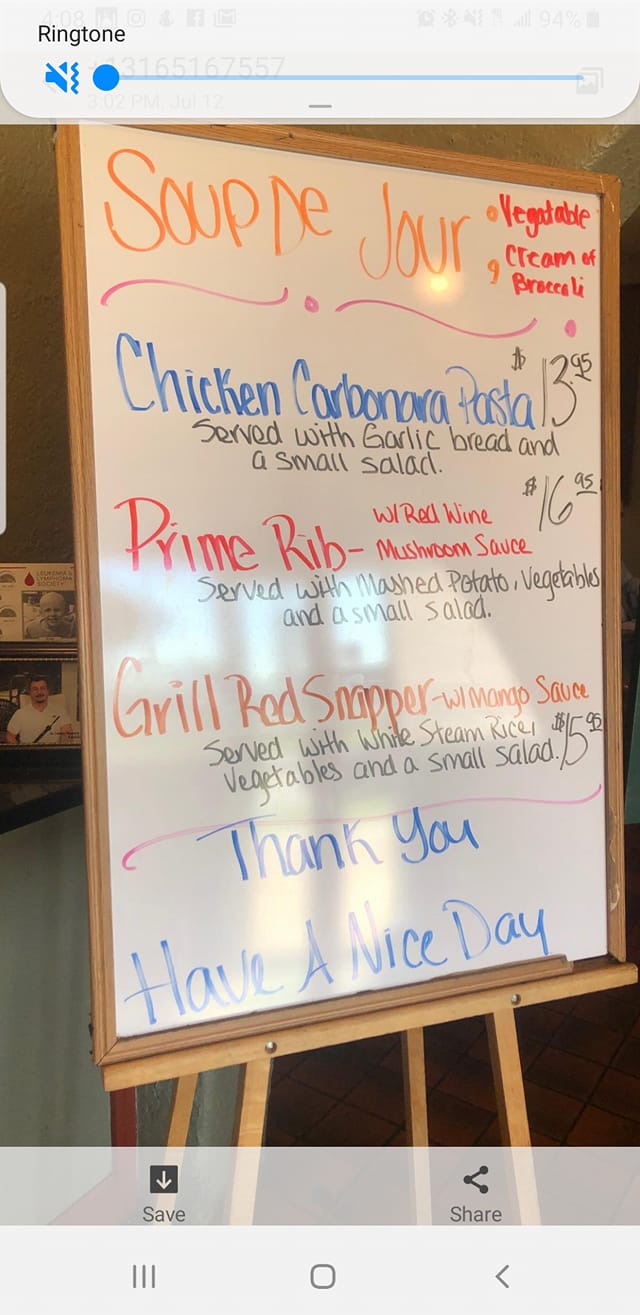 4:08
94%
Ringtone
+13165167557
3:02 PM, Jul 12
Soup De Jour
Vegatable
Cream of
Broccoli
Chicken Carbonara Pasta $13.95
Served with Garlic bread and
a small salad.
$16.95
Prime Rib- w/Red Wine
Mushroom Sauce
Served with Mashed Potato, Vegetables
and a small salad.
Grill Red Snapper-w/Mango Sauce
Served with White Steam Rice, $15.95
Vegetables and a small salad.
Thank You
Have A Nice Day
LEUKEMIA &
LYMPHOMA
SOCIETY
Save
Share